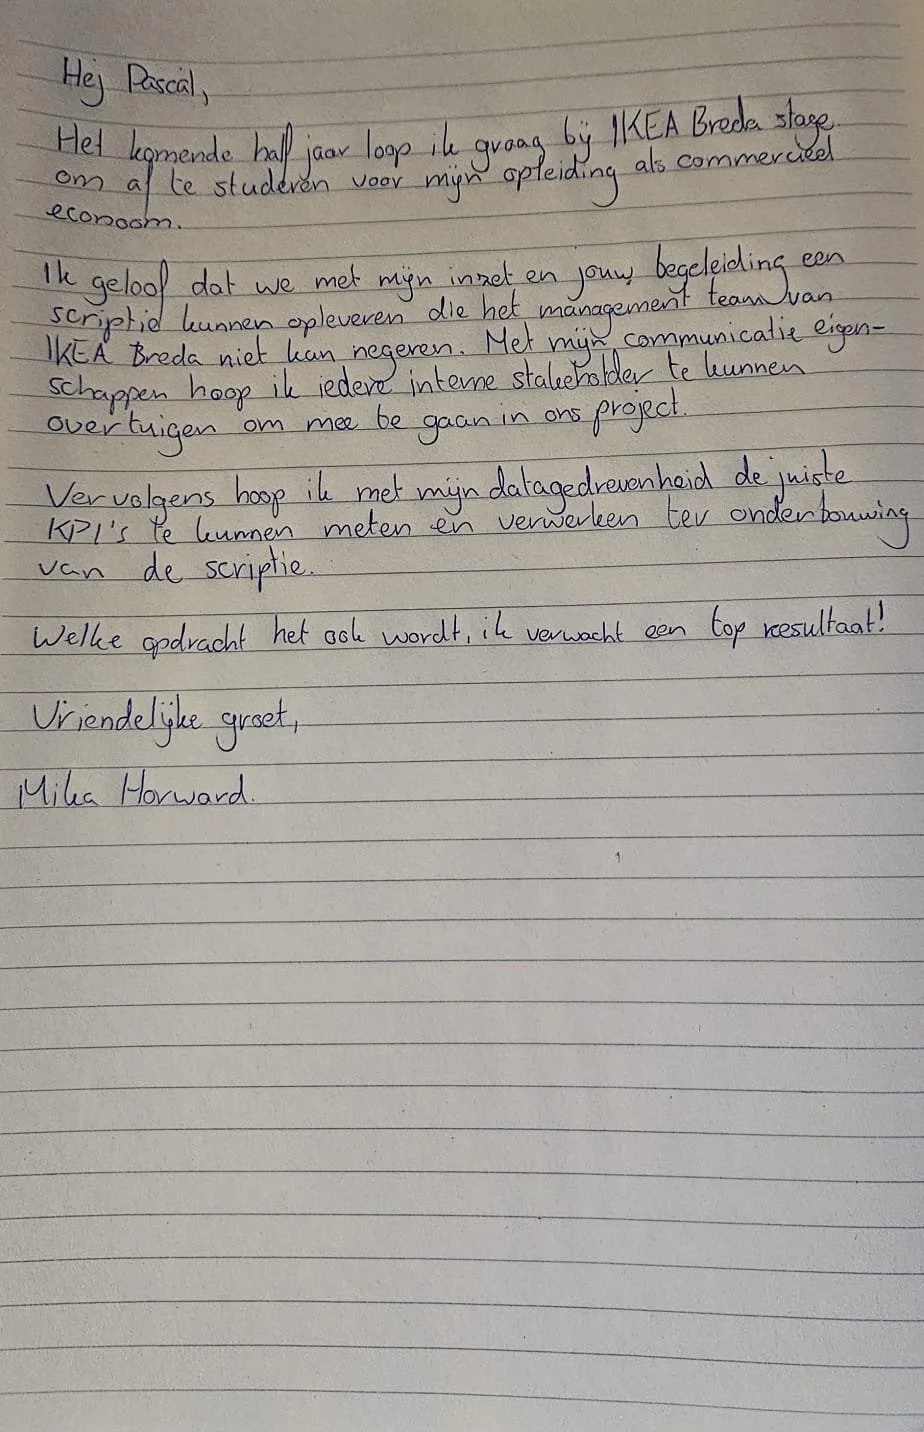 Hej Pascal,
Het komende half jaar loop ik graag bij IKEA Breda stage
om af te studeren voor mijn opleiding als commercieel
econoom.
Ik geloof dat we met mijn inzet en jouw begeleiding een
scriptie kunnen opleveren die het management team van
IKEA Breda niet kan negeren. Met mijn communicatie eigen-
schappen hoop ik iedere interne stakeholder te kunnen
overtuigen om mee be gaan in ons project.
Vervolgens hoop ik met mijn datagedrevenheid de juiste
KPI's te kunnen meten en verwerken ter onderbouwing
van de scriptie.
Welke opdracht het ook wordt, ik verwacht een top resultaat!
Vriendelijke groet,
Mika Horward.